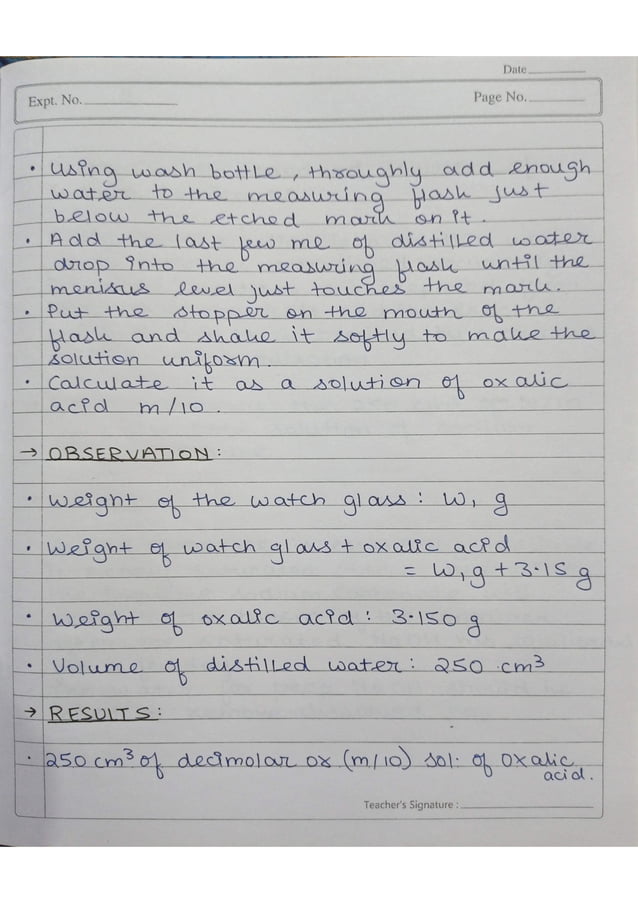 Date
Expt. No.
Page No.
• Using wash bottle, throughly add enough
water to the measuring flask just
below the etched mark on it.
• Add the last few me of distilled water
drop into the measuring flask until the
menisus level just touches the mark.
• Put the stopper on the mouth of the
flask and shake it softly to make the
solution uniform.
• Calculate it as a solution of oxalic
acid m/10.
→ OBSERVATION:
• Weight of the watch glass: W₁ g
• Weight of watch glass + oxalic acid
= W₁g + 3.15 g
• Weight of oxalic acid: 3.150 g
• Volume of distilled water: 250 cm³
→ RESULTS:
• 250 cm³ of decimolar or (m/10) sol: of Oxalic
acid.
Teacher's Signature :